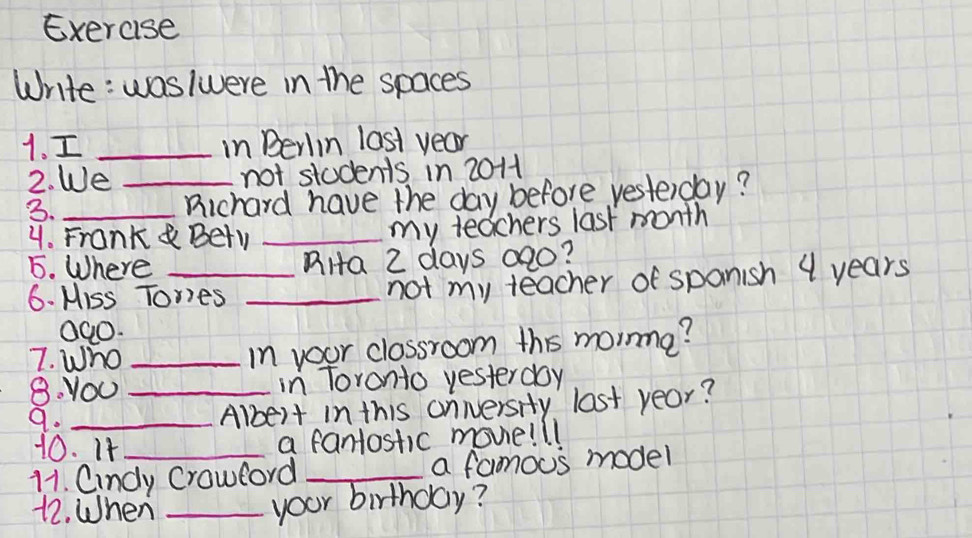 Exercise
Write: was/were in the spaces
1. I ______ in Berlin last year
2. We ______ not students in 2011
3. ______ Richard have the day before yesterday?
4. Frank & Bety ______ my teachers last month
5. Where ______ Rita 2 days ago?
6. Miss Torres ______ not my teacher of spanish 4 years
ago.
7. Who ______ in your classroom this morning?
8. You ______ in Toronto yesterday
9. ______ Albert in this university last year?
10. It ______ a fantastic movie!!!
11. Cindy Crawford ______ a famous model
12. When ______ your birthday?